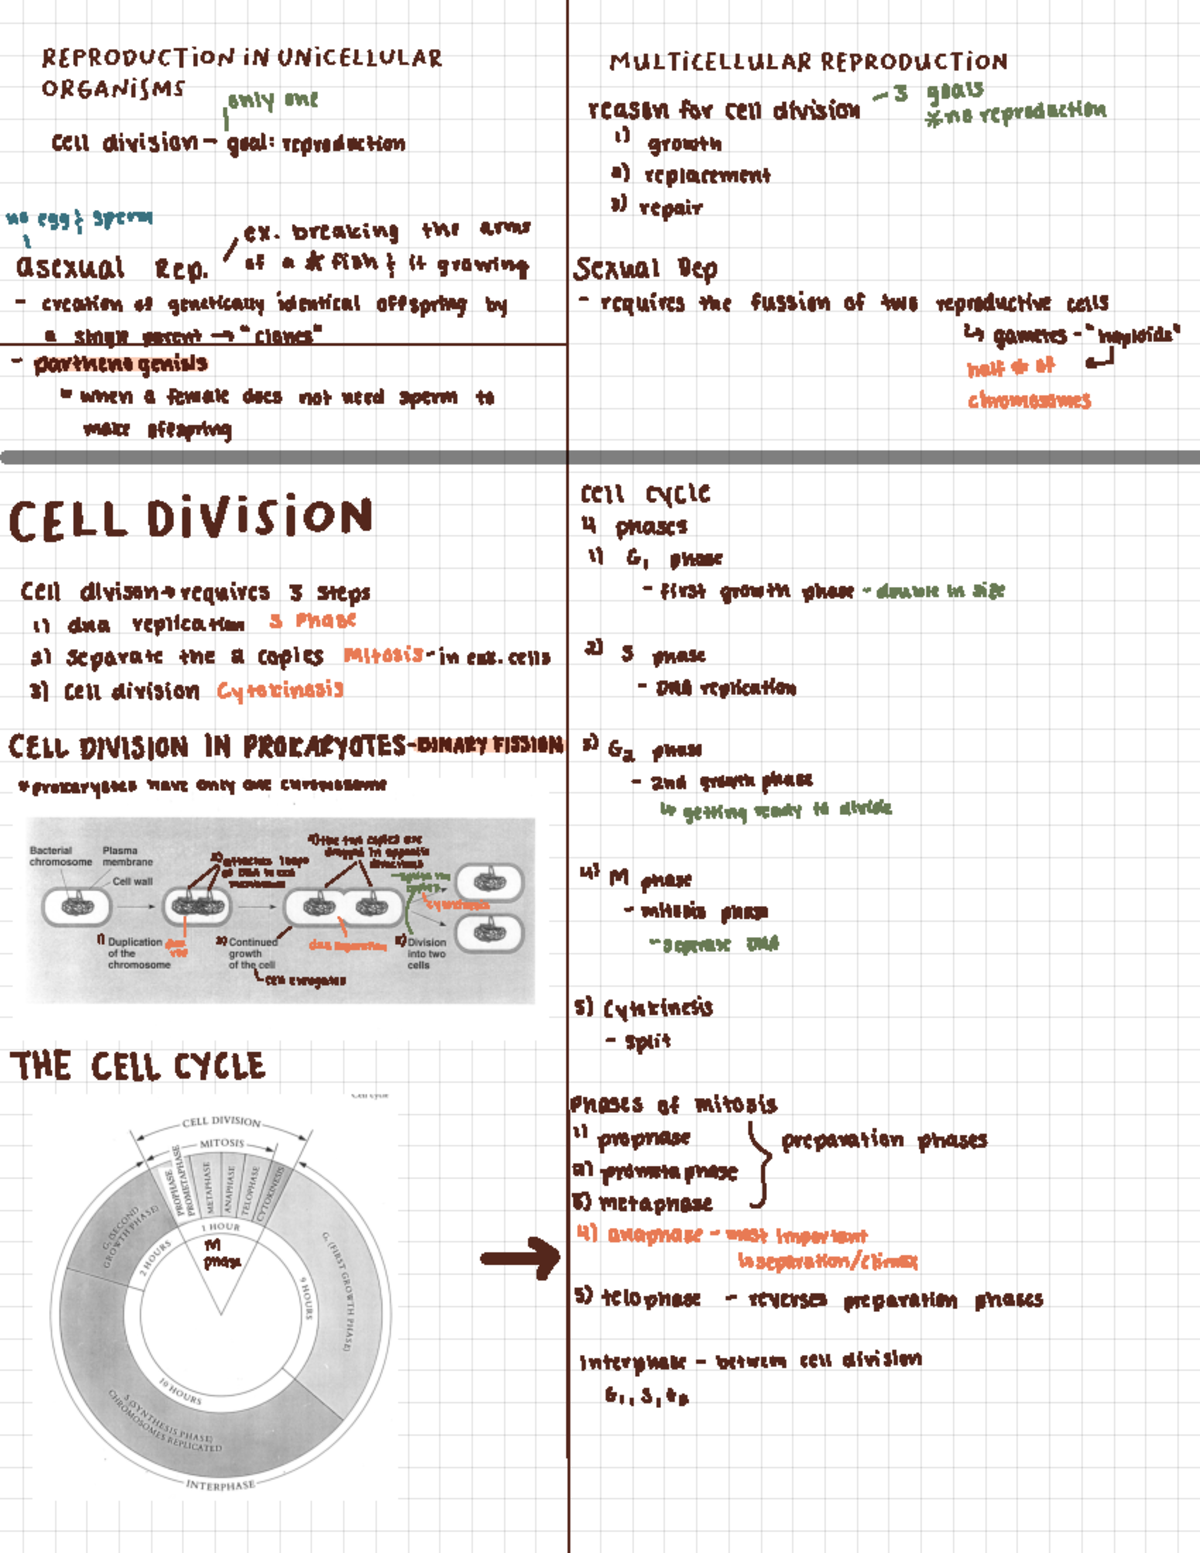 REPRODUCTION IN UNICELLULAR
ORGANISMS
only one
cell division - goal: reproduction
no egg & sperm
asexual Rep.
ex. breaking the arms
of a * fish & it growing
- creation of genetically identical offspring by
a single parent → "clones"
- parthenogenisis
when a female does not need sperm to
make offspring
MULTICELLULAR REPRODUCTION
reason for cell division - 3 goals
* no reproduction
1) growth
2) replacement
3) repair
Sexual Rep
- requires the fussion of two reproductive cells
↳ gametes - "haploids"
half # of
chromosomes
CELL DIVISION
Cell divison → requires 3 steps
1) dna replication S Phase
2) separate the 2 copies Mitosis - in euk. cells
3) Cell division Cytokinesis
CELL DIVISION IN PROKARYOTES - BINARY FISSION
* prokaryotes have only one chromosome
Bacterial
chromosome
Plasma
membrane
Cell wall
2) attaches loops
of DNA to cell
membrane
4) the two copies are
dragged in opposite
directions
cytokinesis
1) Duplication
of the
chromosome
dna
rep
3) Continued
growth
of the cell
cell elongates
dna separation
5) Division
into two
cells
THE CELL CYCLE
Cell cycle
CELL DIVISION
MITOSIS
PROPHASE
PROMETAPHASE
METAPHASE
ANAPHASE
TELOPHASE
CYTOKINESIS
1 HOUR
M
phase
G₂ (SECOND
GROWTH PHASE)
2 HOURS
G₁ (FIRST GROWTH PHASE)
9 HOURS
10 HOURS
S (SYNTHESIS PHASE)
CHROMOSOMES REPLICATED
INTERPHASE
cell cycle
4 phases
1) G₁ phase
- first growth phase - double in size
2) S phase
- DNA replication
3) G₂ phase
- 2nd growth phase
↳ getting ready to divide
4) M phase
- mitosis phase
- seperate DNA
5) Cytokinesis
- split
Phases of mitosis
1) prophase
2) prometaphase
3) metaphase
preparation phases
4) anaphase - most important
↳ separation/climax
5) telophase - reverses preparation phases
Interphase - between cell division
G₁, S, G₂